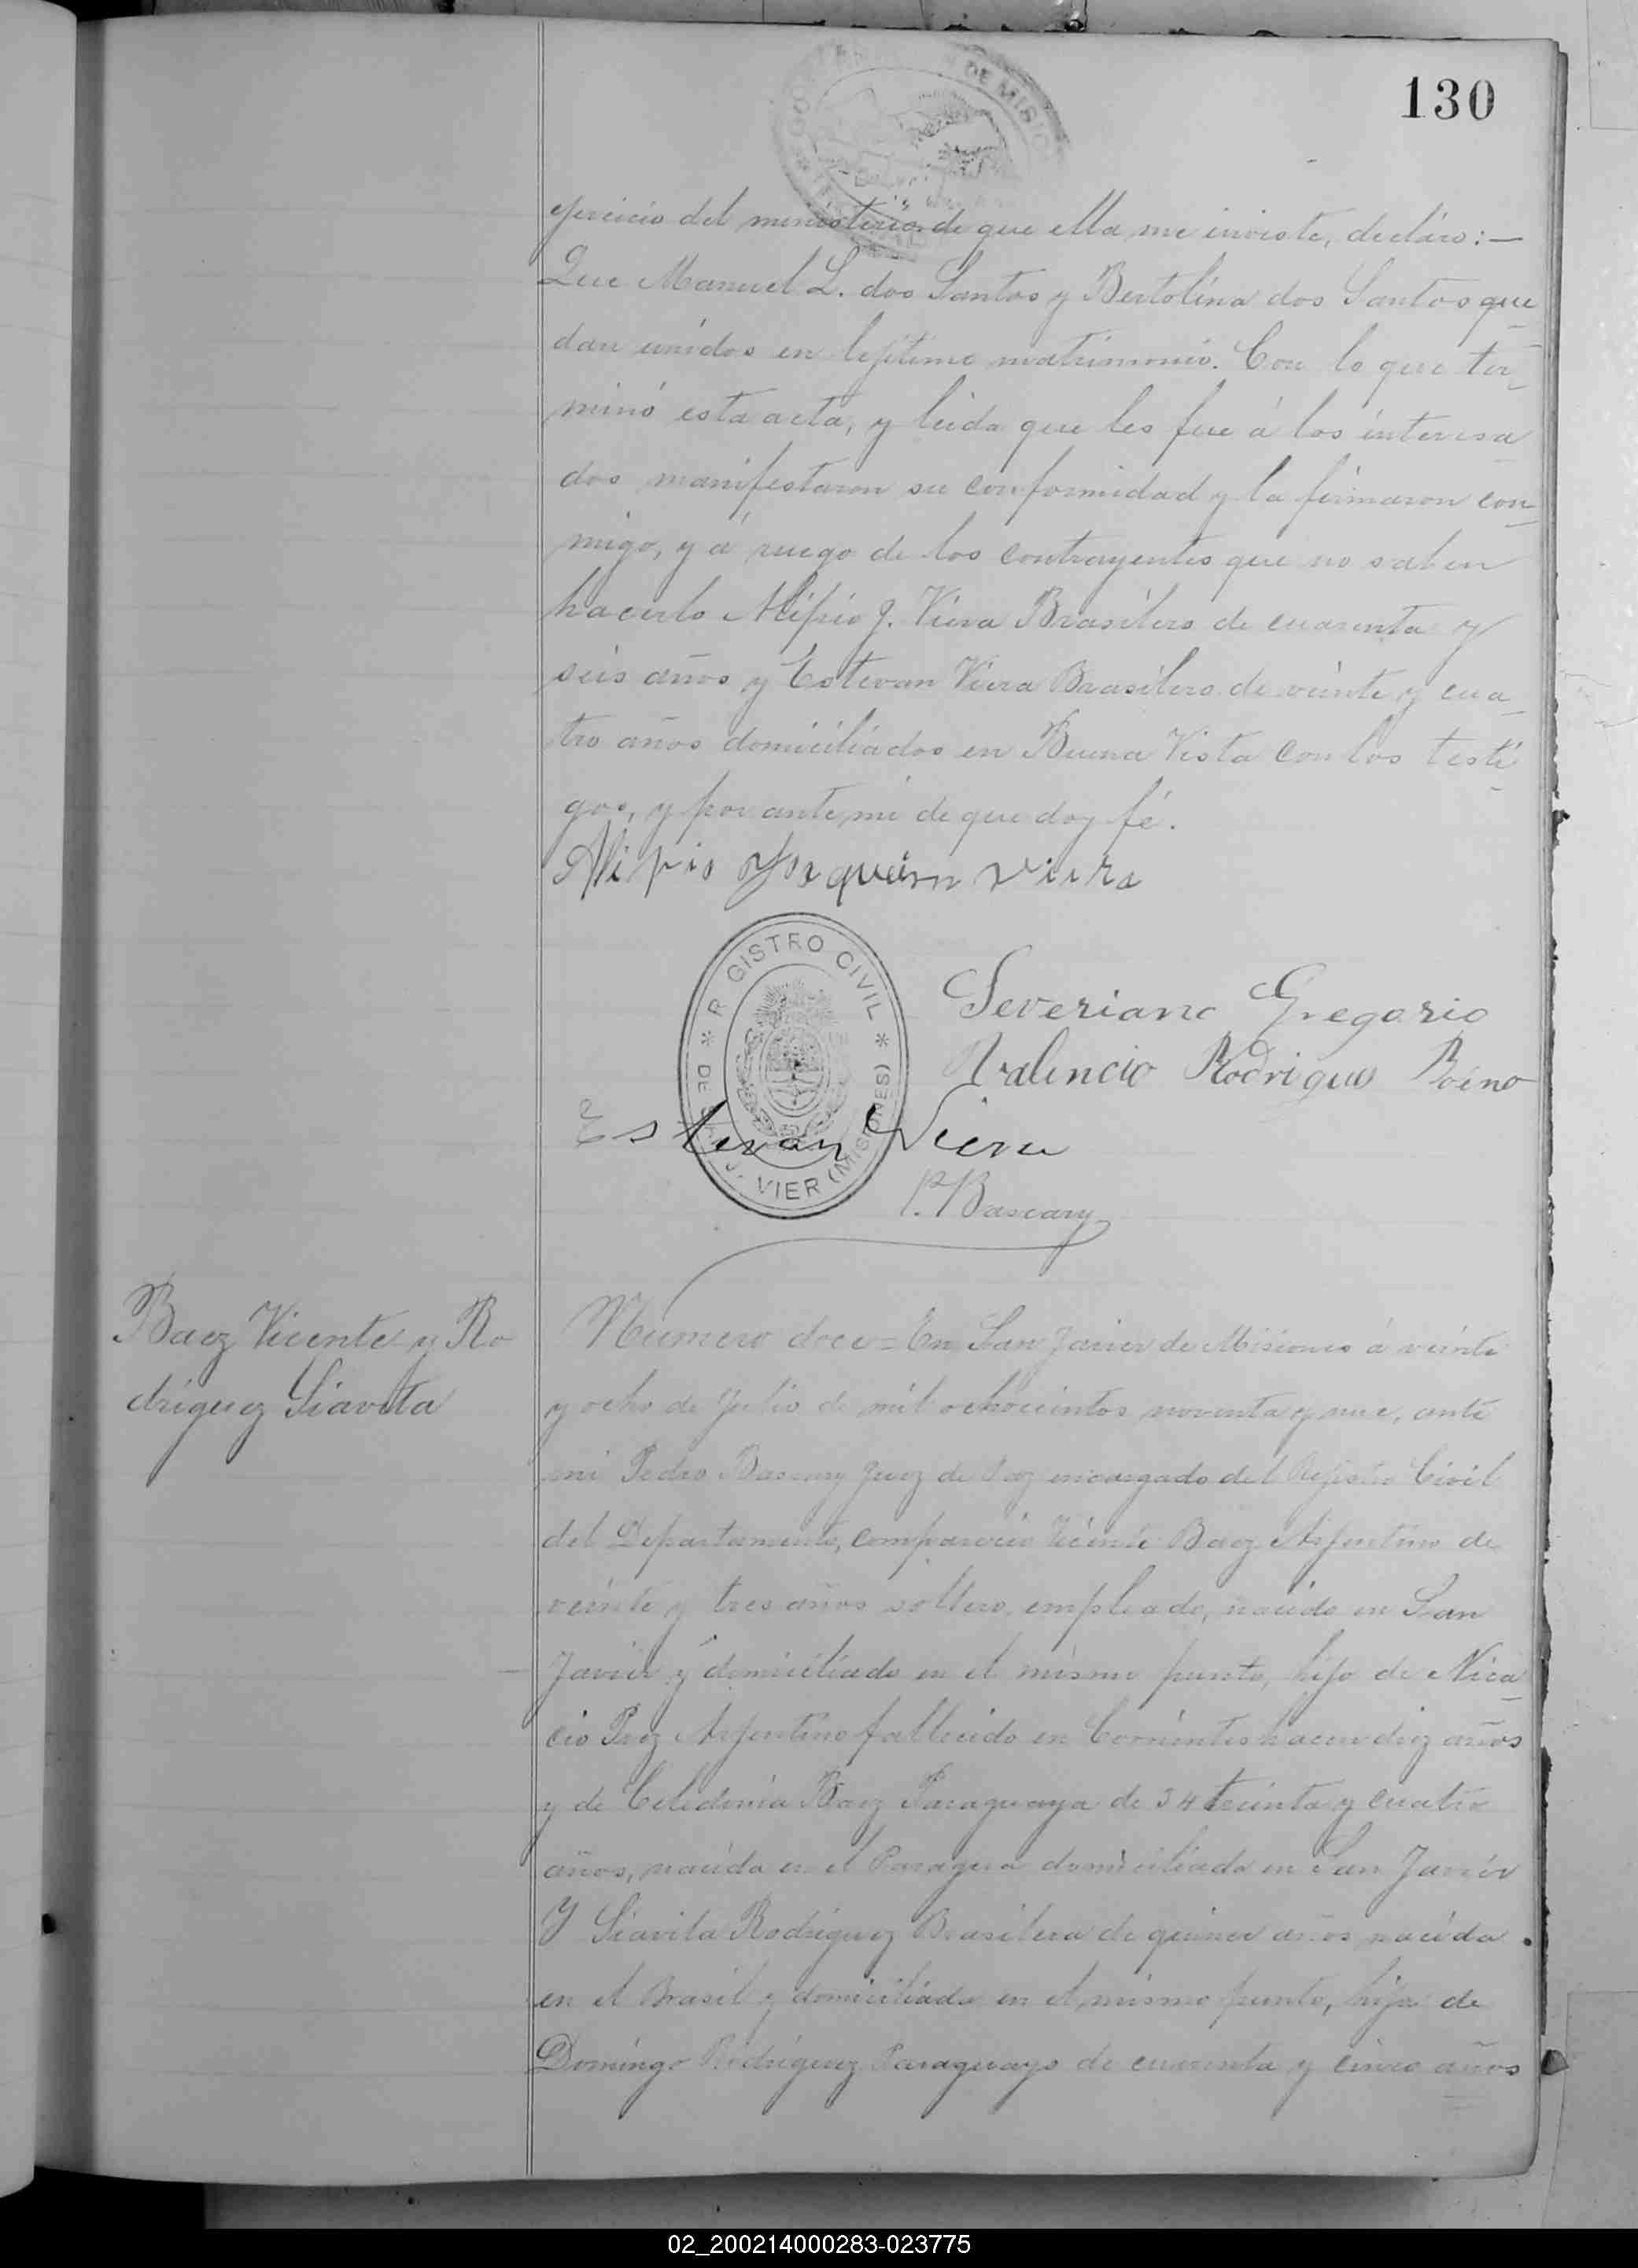 130
DE MISIO
ejercicio del ministerio de que ella me inviste, declaro:—
Que Manuel L. dos Santos y Bertolina dos Santos que
dan unidos en lejitimo matrimonio. Con lo que ter-
minó esta acta, y leida que les fue á los interesa
dos manifestaron su conformidad y la firmaron con-
migo, y á ruego de los contrayentes que no saben
hacerlo Alipio J. Viera Brasilero de cuarenta y
seis años y Estevan Viera Brasilero de veinte y cua-
tro años domiciliados en Buena Vista con los testi-
gos, y por ante mi de que doy fé.
Alipio Joaquim Vieira
R GISTRO CIVIL * DE S J. VIER (MISIONES) *
Severiano Gregorio
Valencio Rodrigues
Estevan Viera
P. Bascary
Baez Vicente y Ro
driguez Siavita
Numero doce = En San Javier de Misiones á veinte
y ocho de Julio de mil ochocientos noventa y nueve, ante
mi Pedro Bascary Juez de Paz encargado del Rejistro Civil
del Departamento, comparecio Vicente Baez Arjentino de
veinte y tres años soltero, empleado, nacido en San
Javier y domiciliado en el mismo punto, hijo de Nica-
cio Paez Arjentino fallecido en Corrientes hacen diez años
y de Celedonia Baez Paraguaya de 34 treinta y cuatro
años, nacida en el Paragua domiciliada en San Javier
Y Siavita Rodriguez Brasilera de quince años nacida
en el Brasil y domiciliada en el mismo punto, hija de
Domingo Rodriguez Paraguayo de cuarenta y cinco años
02_200214000283-023775